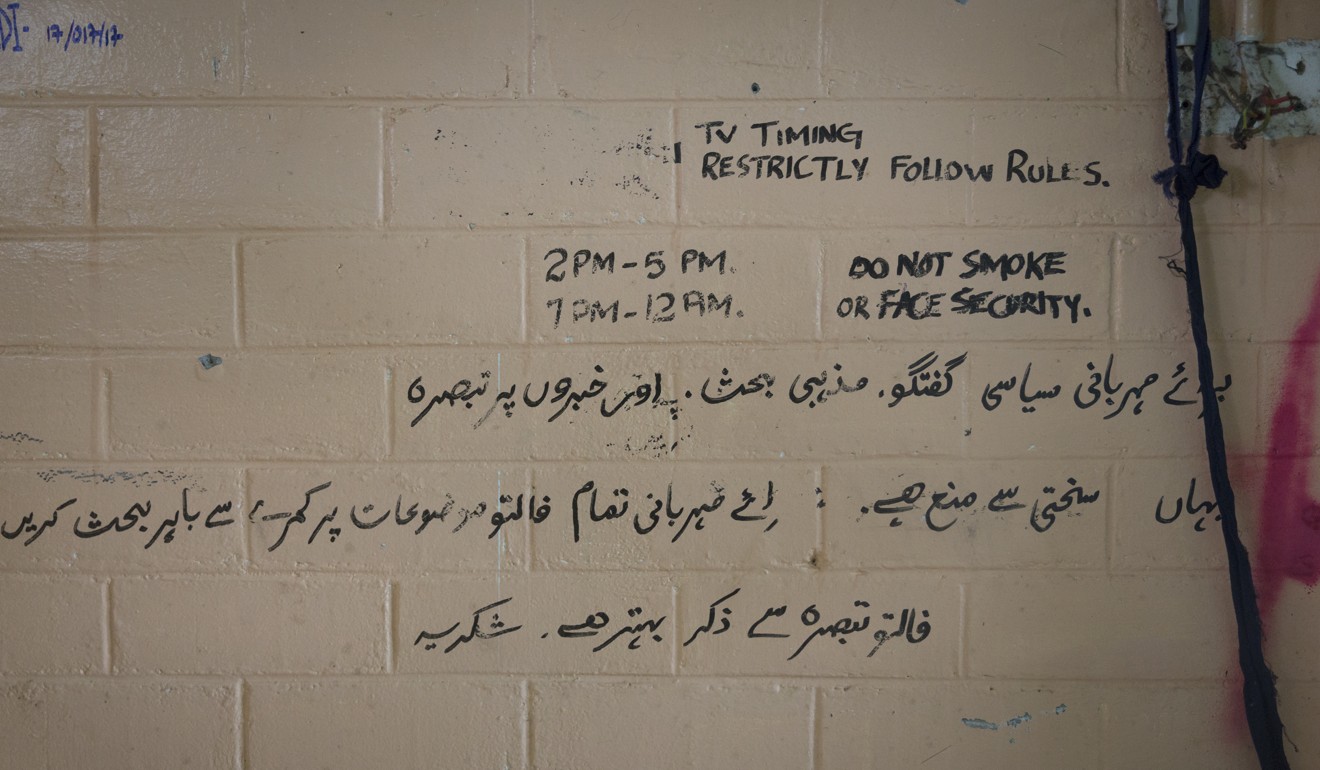 DI- 17/017/17
TV TIMING
RESTRICTLY FOLLOW RULES.
2PM-5 PM.
7PM-12AM.
DO NOT SMOKE
OR FACE SECURITY.
برائے مہربانی سیاسی گفتگو. مذہبی بحث. اور خبروں پہ تبصرہ
یہاں سختی سے منع ھے. : ائے مہربانی تمام فالتو موضوعات پر کمرے سے باہر بحث کریں
فالتو تبصرہ سے ذکر بہتر ھے. شکریہ